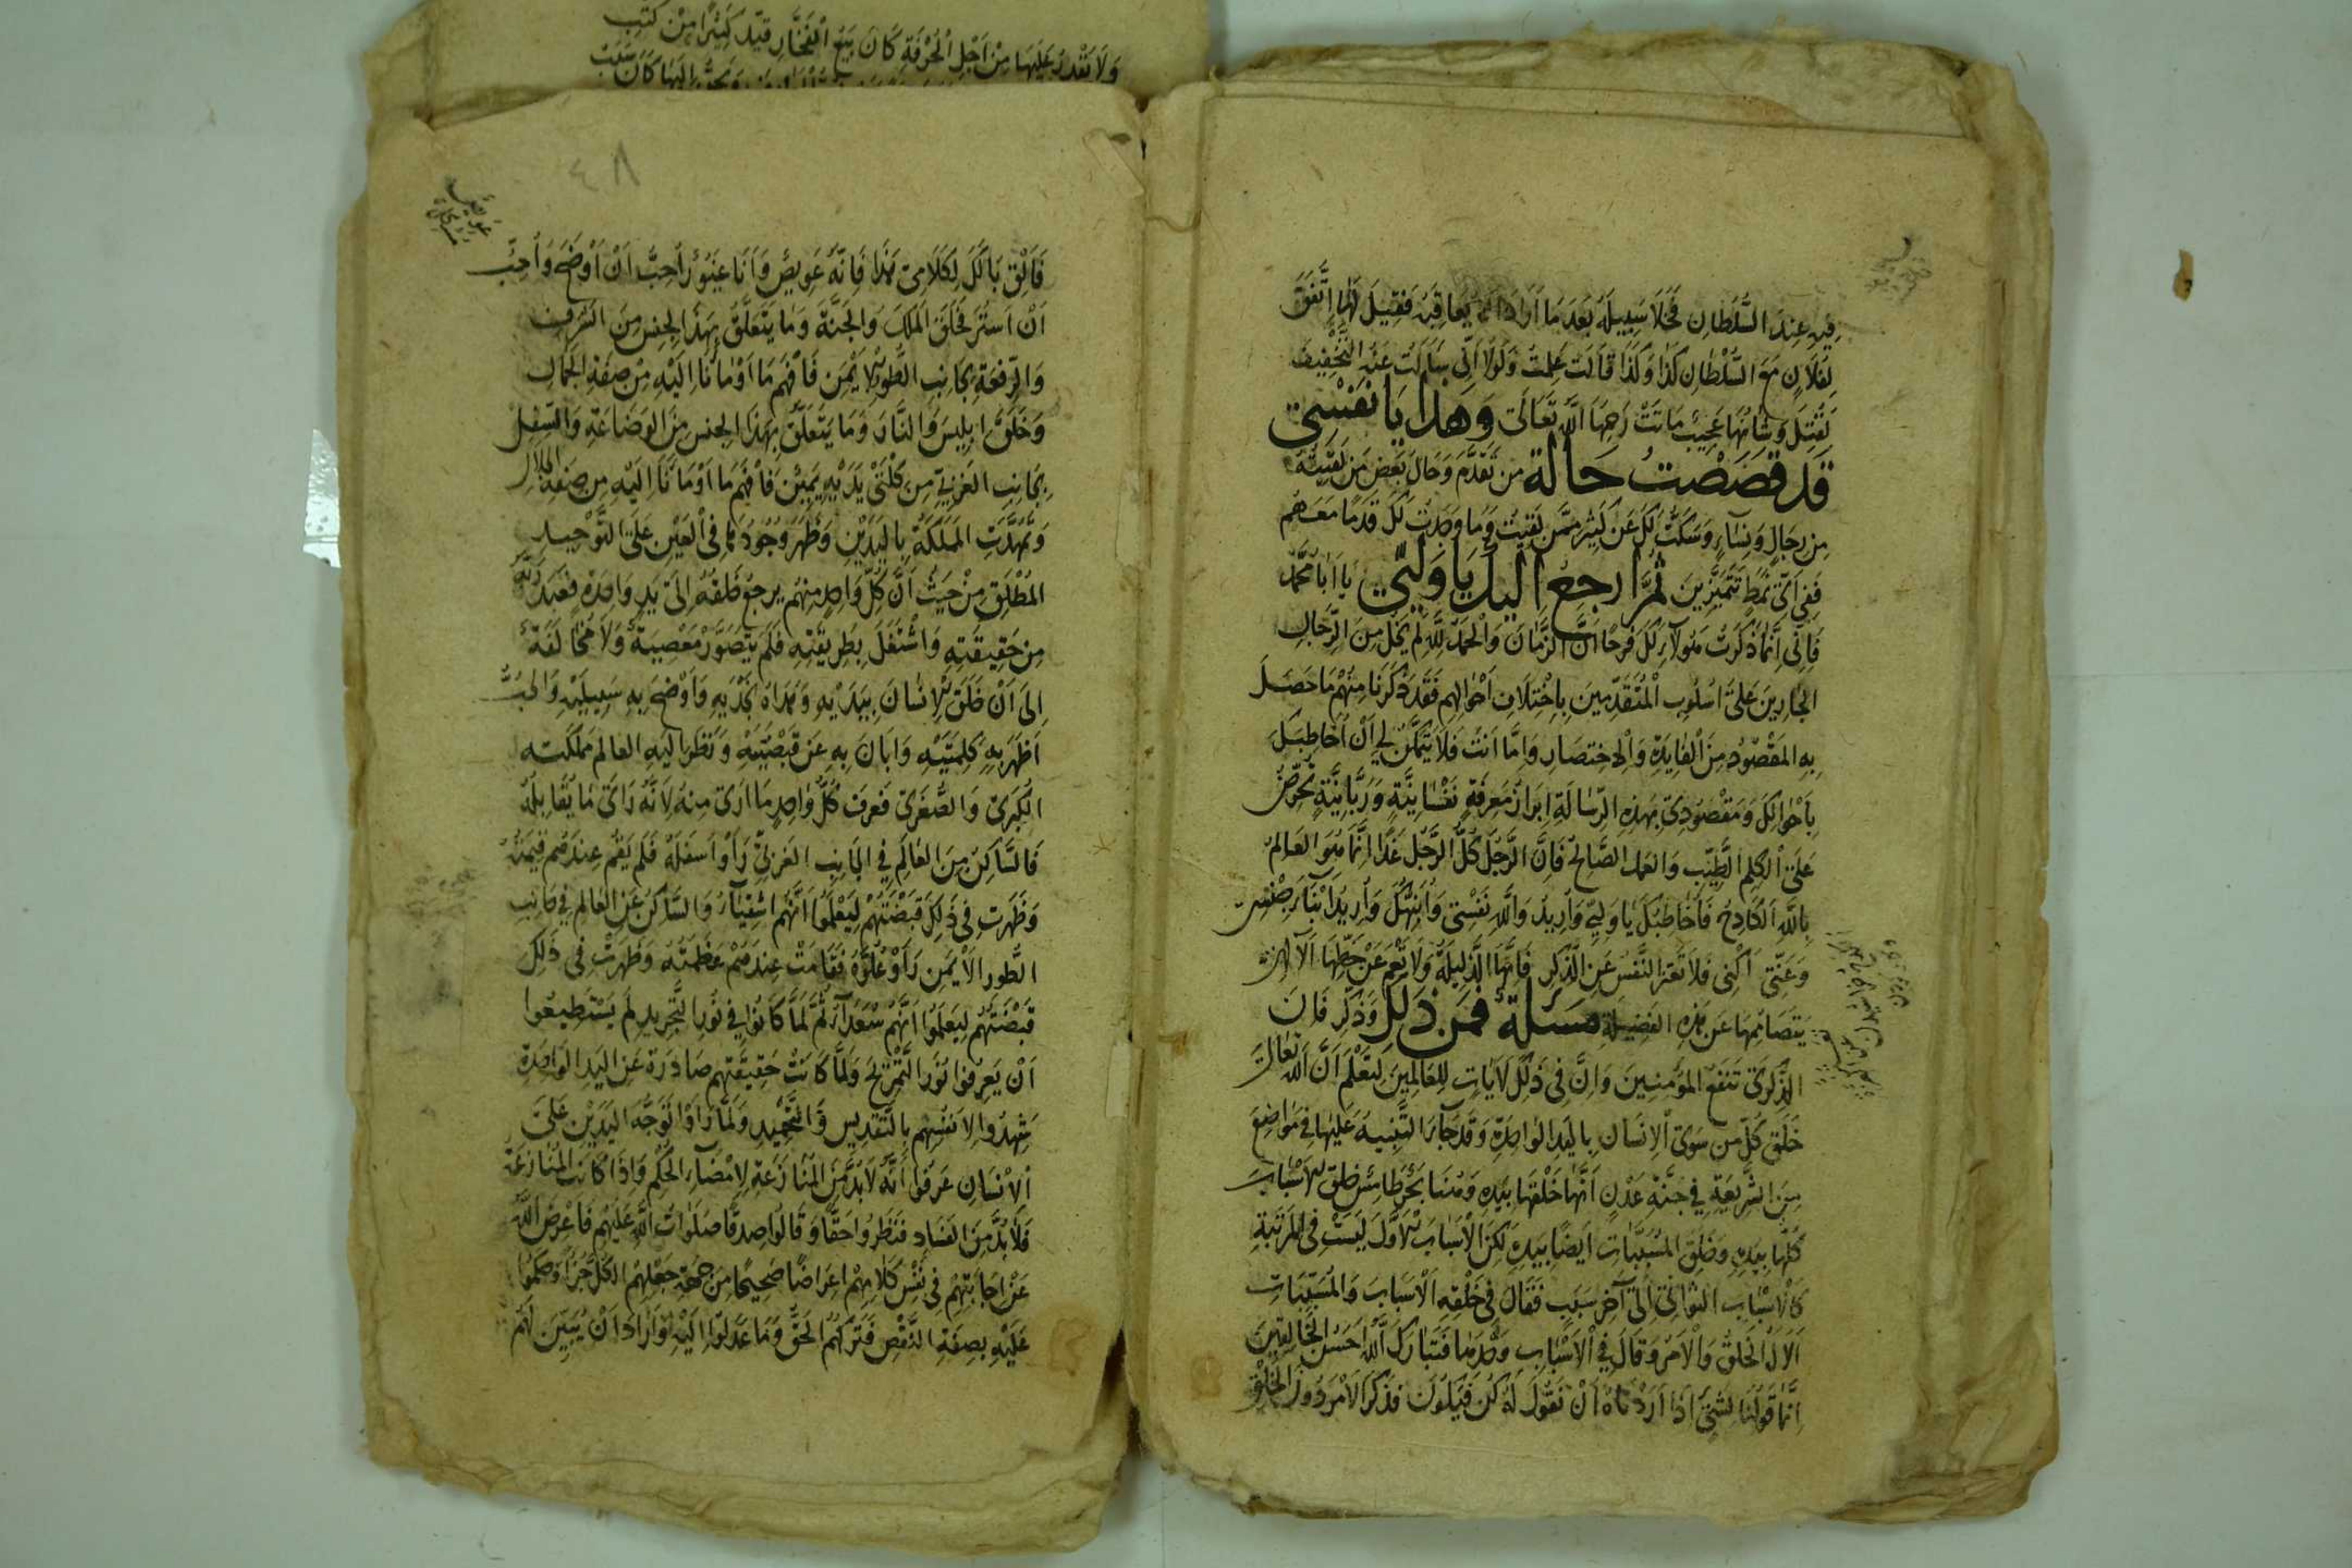 فيه عند السُّلطان فخلا سبيله بعد ما أراد أن يعاقبه فقيل لها اتّفق
لفلان مع السُّلطان كذا وكذا قالت علمت ولولا أنّي سألت عنه التّخفيف
لقتل وشأنها عجيب ماتت رحمها الله تعالى وهذا يا نفسي
قد قصصت حالة من تقدّم وحال بعض من لقيته
من رجال ونساء وسكتّ لك عن كثير ممّن لقيت وما وجدت لك قدما معهم
ففي أيّ نمط تتميّزين ثمّ ارجع إليك يا وليّي يا أبا محمّد
فإنّي إنّما ذكرت هؤلاء لك فرحا أنّ الزّمان والحمد لله لم يخل من الرّجال
الجارين على أسلوب المتقدّمين باختلاف أحوالهم فقد ذكرنا منهم ما حصل
به المقصود من الفايدة والاختصار وإمّا أنت فلا يتمكّن لي أن أخاطبك
بأحوالك ومقصودي بهذه الرّسالة ابراز معرفة نفسانيّة وربّانيّة تحرّض
على الكلم الطّيّب والعمل الصّالح فإنّ الرّجل كلّ الرّجل غدا إنّما هو العالم
بالله الكادح فأخاطبك يا وليّي وأريد والله نفسي وأنبّهك وأريد أبناء جنسي
وعنّي أكني فلا تغترّ النّفس عن الذّكر فإنّها الذّليلة ولا تعم عن حظّها إلّا
يتصاممها عن هذه الفضيلة مسئلة فمن ذلك وذكّر فإنّ
الذّكرى تنفع المؤمنين وإنّ في ذلك لآيات للعالمين لتعلم أنّ الله تعالى
خلق كلّ من سوى الإنسان باليد الواحدة وقد جاء التّنبيه عليها في مواضع
من الشّريعة في جنّة عدن أنّها خلقها بيده وهنا بحر طامس خلق الأسباب
كلّها بيده وخلق المسبّبات أيضا بيده لكن الأسباب الأول ليست في المرتبة
كالأسباب الثّواني إلى آخر سبب فقال في خلقه الأسباب والمسبّبات
ألا له الخلق والأمر وقال في الأسباب وحدها فتبارك الله أحسن الخالقين
إنّما قولنا لشيء إذا أردناه أن نقول له كن فيكون فذكر الأمر دون الخلق
ولا تقدر عليها من أجل الحرفة كان يبيع الفخّار قيّد كثيرا من كتب
٤٨
فألق بالك لكلامي هذا فإنّه عويص وأنا غيور أحبّ أن أوضح وأحبّ
أن أستر فخلق الملك والجنّة وما يتعلّق بهذا الجنس من الشّرف
والرّفعة بجانب الطّور الأيمن فافهم ما أومأنا إليه من صفة الجمال
وخلق إبليس والنّار وما يتعلّق بهذا الجنس من الوضاعة والسّفل
بجانب الغربيّ من كلتي يديه يمين فافهم ما أومأنا إليه من صفة الجلال
وتمهّدت المملكة باليدين وظهر وجودها في العين على التّوحيد
المطلق من حيث أنّ كلّ واحد منهم يرجع خلقه إلى يد واحدة فعبد ربّه
من حقيقته واشتغل بطريقته فلم يتصوّر معصية ولا مخالفة
إلى أن خلق الإنسان بيديه وهداه نجديه وأوضح به سبيليه والحبّ
أظهر به كلمتيه وأبان به عن قبضتيه ونظر إليه العالم مملكته
الكبرى والصّغرى فعرف كلّ واحد ما أرى منه لأنّه رأى ما يقابله
فالسّاكن من العالم في الجانب الغربيّ رأوا أسفله فلم يقم عندهم قيمته
وظهرت في ذلك قبضتهم ليعلموا أنّهم أشقياء والسّاكن عن العالم في جانب
الطّور الأيمن رأوا علوّه فقامت عندهم عظمته وظهرت في ذلك
قبضتهم ليعلموا أنّهم سعداء ثمّ لمّا كانوا في نور التّجريد لم يستطيعوا
أن يعرفوا نور التّمزيج ولمّا كانت حقيقتهم صادرة عن اليد الواحدة
شهدوا لأنفسهم بالتّقديس والتّمجيد ولمّا رأوا توجّه اليدين على
الإنسان عرفوا أنّه لا بدّ من المنازعة لإمضاء الحكم وإذا كانت المنازعة
فلا بدّ من الفساد فنظروا حقّا وقالوا صدقا صلوات الله عليهم فأعرض الله
عن إجابتهم في نفس كلامهم اعراضا صحيحا من جهة جعلهم الكلّ جزءا وحكموا
عليه بصفة النّقص فتركهم الحقّ وما عدلوا إليه وأراد أن يبيّن لهم